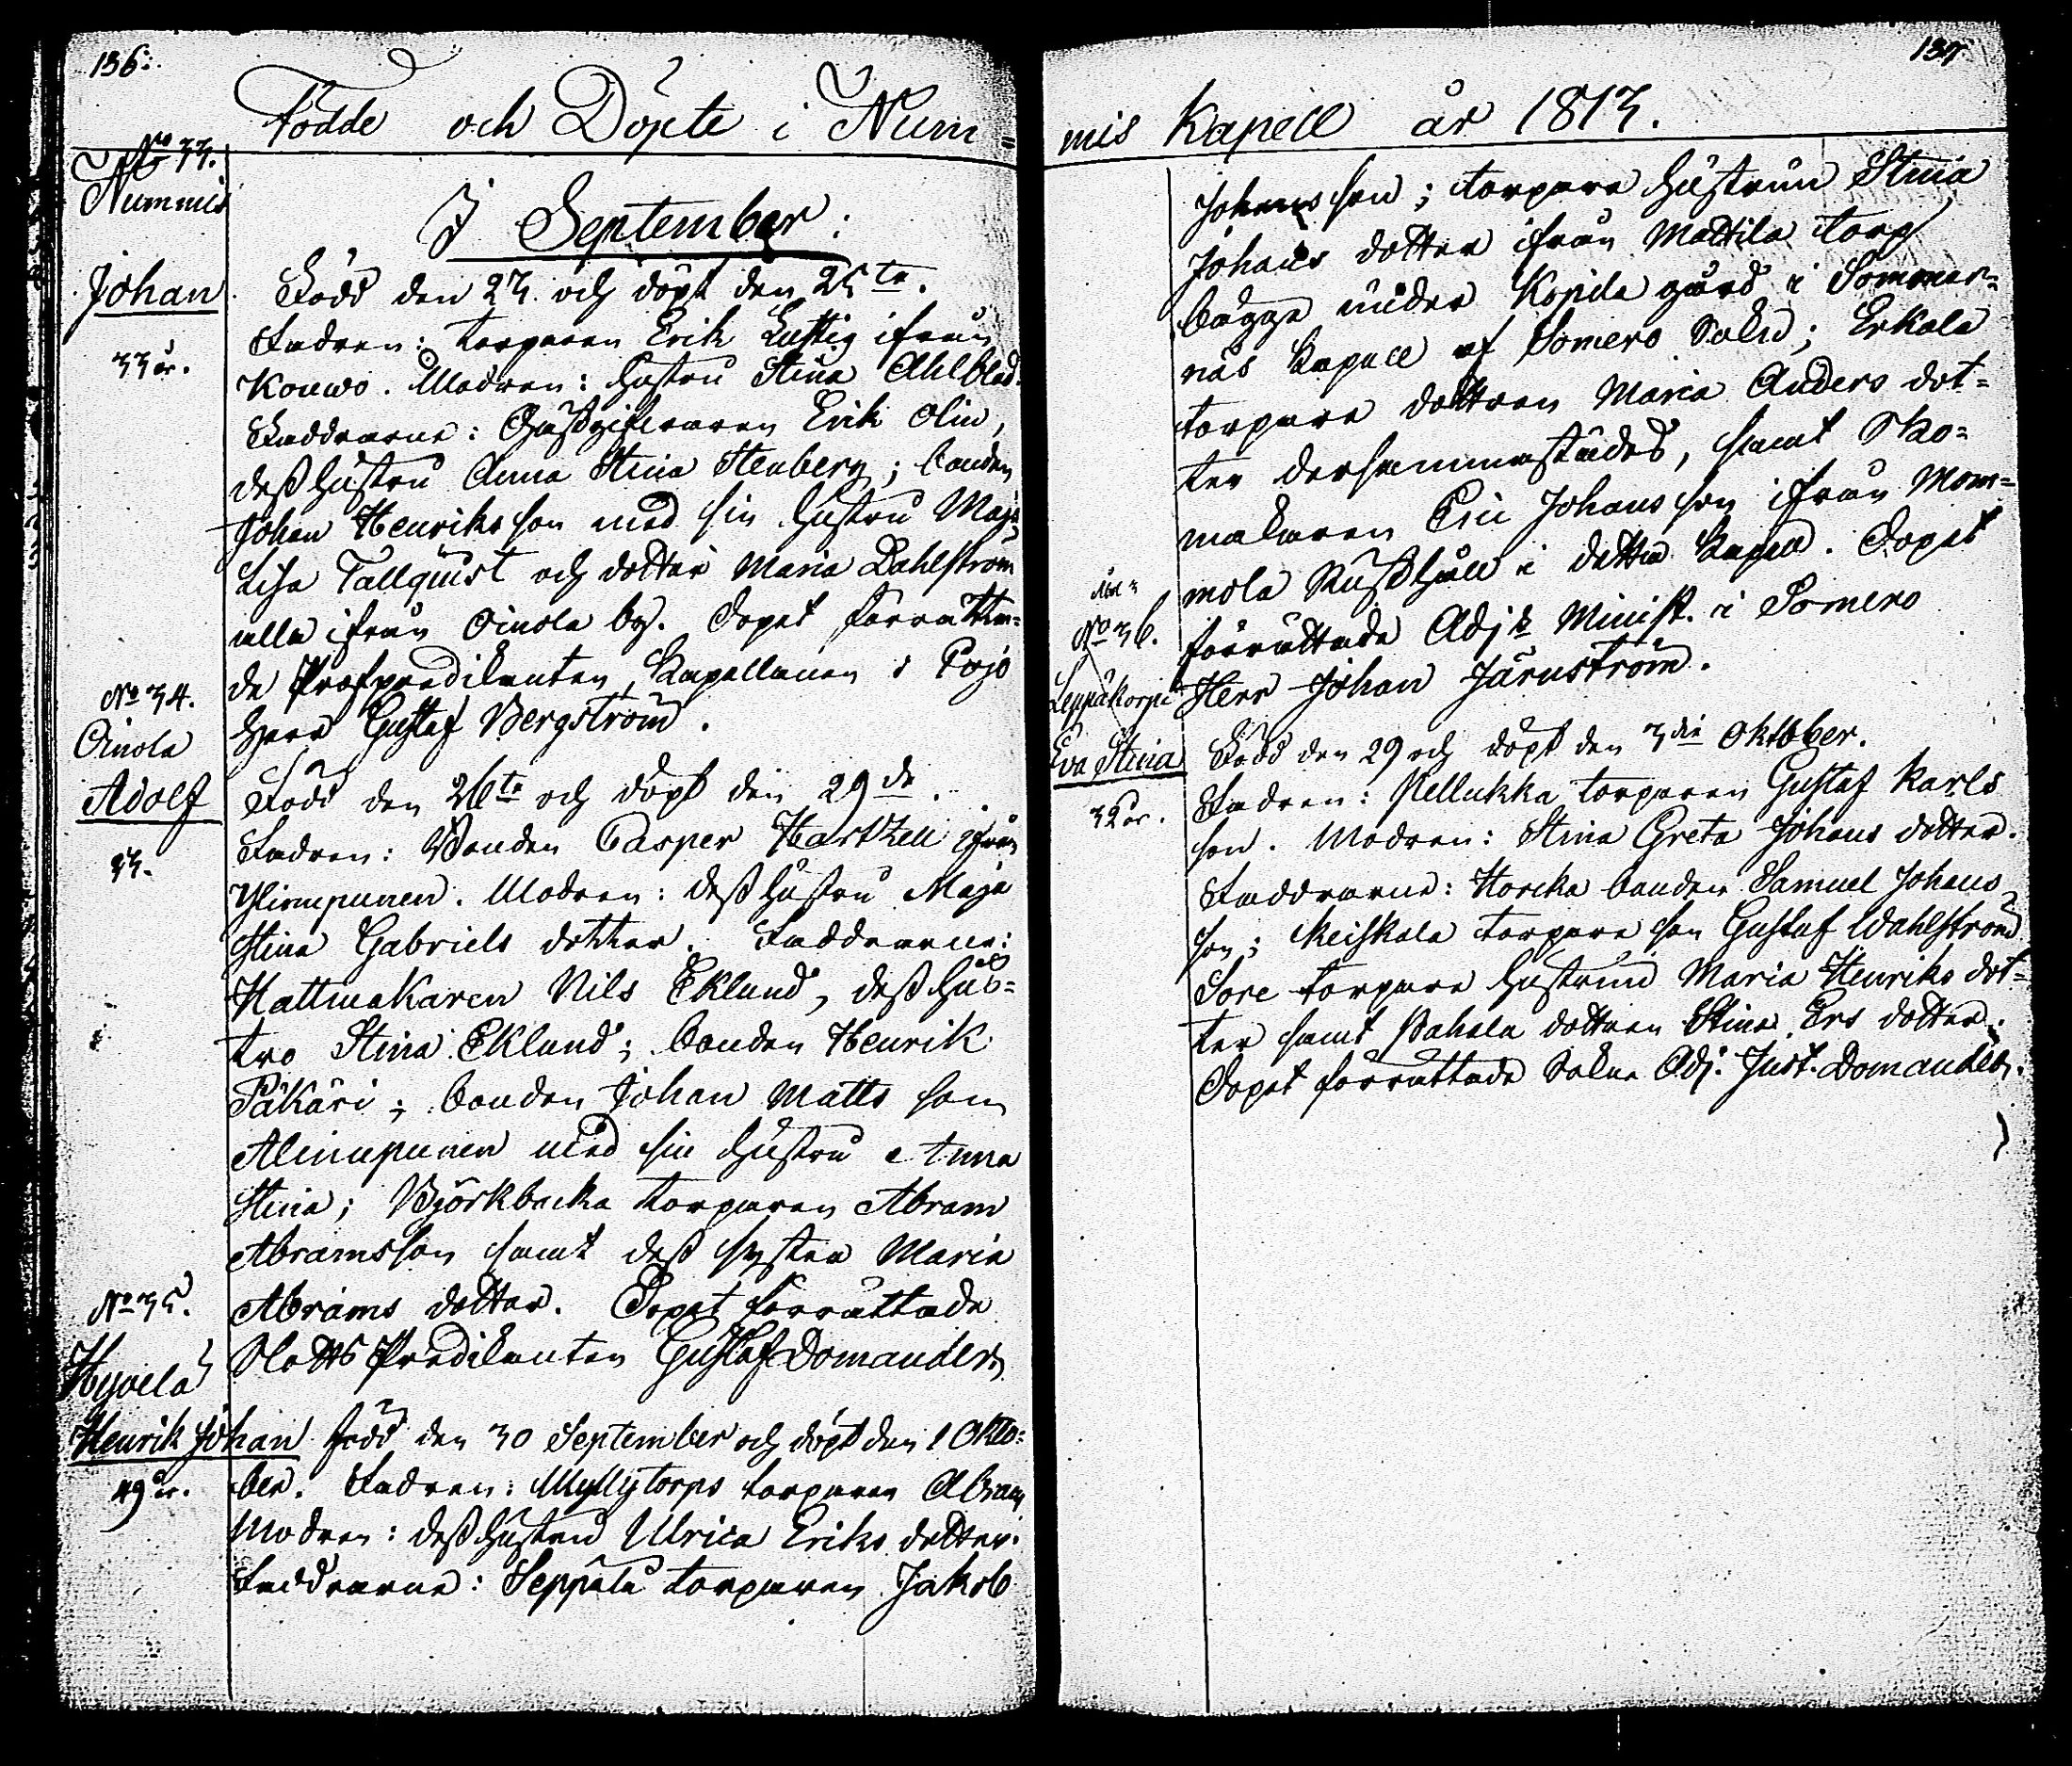 136.
Födde och Döpte i Num=
No 33.
Nummis
I September.
Johan
Född den 23. och döpt den 25te.
Fadren: torparen Erik Lustig ifrån
33 år.
Kouwo. Modren: hustru Stina Ahlblad.
Faddrarne: Gästgifvaren Erik Olin,
dess hustru Anna Stina Stenberg; bonden
Johan Henriksson med sin hustru Maja
Lisa Tallquist och dotter Maria Dahlström
alla ifrån Oinola by. Dopet förrätta=
de Profpredikanten, Kapellanen i Pojo
No 34.
Herr Gustaf Bergström.
Oinola
Adolf
Född den 26te och döpt den 29de.
Fadren: Bonden Casper Hartzell ifrån
33.
Ylimpunen. Modren: dess hustru Maja
Stina Gabriels dotter. Faddrarne:
Hattmakaren Nils Eklund, dess hus=
tro Stina Eklund; bonden Henrik
Päkäri; bonden Johan Matts son
Alimpunen med sin hustru Anna
Stina; Björkbacka torparen Abram
Abramsson samt dess syster Maria
No 35.
Abrams dotter. Dopet förrättade
Hyvelä
Slotts Predikanten Gustaf Domander.
Henrik Johan
född den 30 September och döpt den 1 Okto=
49 år.
ber. Fadren: Myllytorps torparen Abram
Modren: dess hustru Ulrica Eriks dotter.
Faddrarne: Seppälä torparen Jakob
137.
mis Kapell år 1813.
Johansson; torpare hustrun Stina
Johans dotter ifrån Mattila torp
bägge under Kopila gård i Sommar=
näs Kapell af Somero Sokn; Erkola
torpare dottren Maria Anders dot=
ter dersammastädes, samt Sko=
makaren Eric Johansson ifrån Mom=
mola Rusthåll i detta Kapell. Dopet
No 36.
förrättade Adj. Minist. i Somero
Leppäkorpi
Herr Johan Järnström.
Eva Stina
Född den 29 och döpt den 3die Oktober.
32 år.
Fadren: Pellukka torparen Gustaf Karls
son. Modren: Stina Greta Johans dotter.
Faddrarne: Horcka bonden Samuel Johans
son; Keiskala torpare son Gustaf Wahlström
Sore torpare hustrun Maria Henriks dot=
ter samt Pahala dottren Stina Ers dotter.
Dopet förrättade Sokne Adj. Just. Domander.